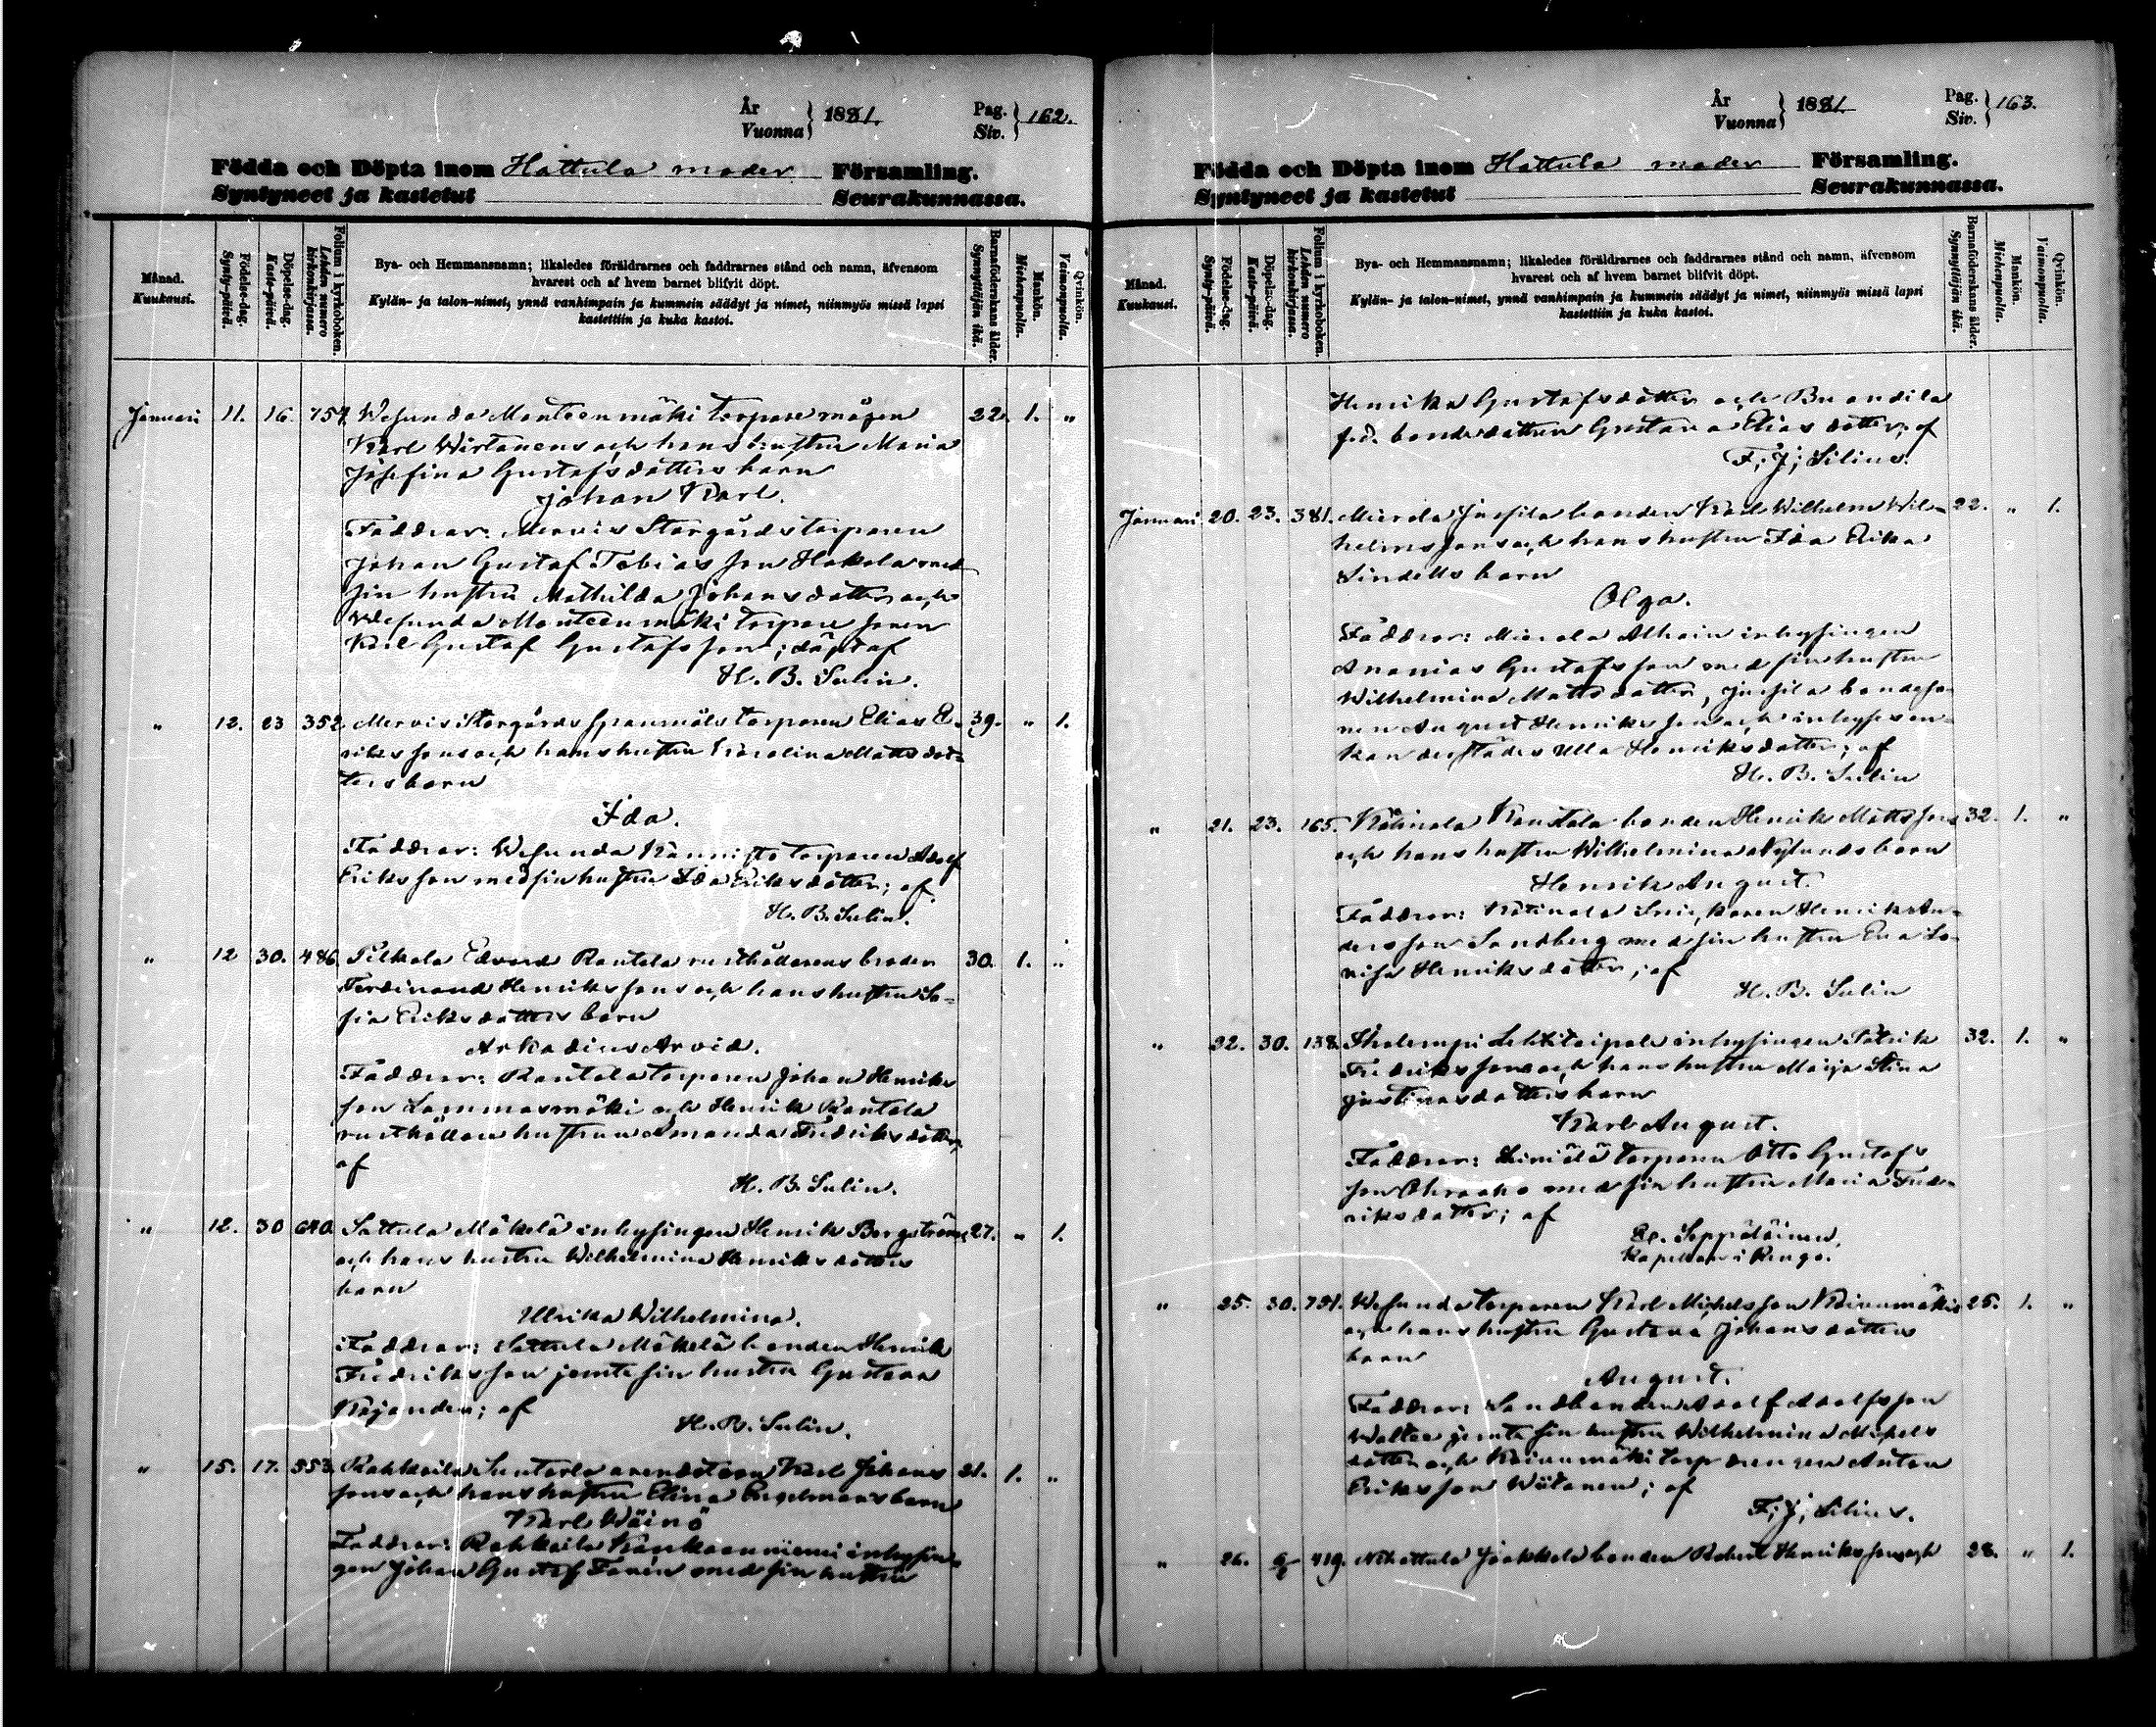 År
Vuonna } 1881.
Pag.
Siv. } 162.
Födda och Döpta inom Hattula moder Församling.
Syntyneet ja kastetut Seurakunnassa.
Månad.
Kuukausi.
Födelse-dag.
Synty-päivä.
Döpelse-dag.
Kaste-päivä.
Folium i kyrkoboken.
Lehden numero kirkonkirjassa.
Bya- och Hemmansnamn; likaledes föräldrarnes och faddrarnes stånd och namn, äfvensom
hvarest och af hvem barnet blifvit döpt.
Kylän- ja talon-nimet, ynnä vanhimpain ja kummein säädyt ja nimet, niinmyös missä lapsi
kastettiin ja kuka kastoi.
Barnaföderskans ålder.
Synnyttäjän ikä.
Mankön.
Miehenpuolta.
Qvinkön.
Vaimonpuolta.
Januari 11. 16. 757. Wesunda Monteenmäki torpare mågen 22. 1. "
Karl Wirtanens och hans hustru Maria
Josefina Gustafsdotters barn
Johan Karl.
Faddrar: Mervis Storgårds torparen
Johan Gustaf Tobiasson Hakola med
sin hustru Mathilda Johansdotter och
Wesunda Monteenmäki torpare sonen
Karl Gustaf Gustafsson; döpt af
H. B. Sulin.
" 12. 23 352 Mervis Storgårds torparen Elias E- 39. " 1.
rikssons och hans hustru Karolina Mattsdot-
ters barn
Ida.
Faddrar: Wesunda Kannisto torparen Adolf
Eriksson med sin hustru Ida Eriksdotter; af
H. B. Sulin.
" 12 30. 486. Pelkola Edvard Rantala rusthållarens broder 30. 1. "
Ferdinand Henrikssons och hans hustru So-
fia Eriksdotters barn
Arkadius Arvid.
Faddrar: Rantala torparen Johan Henriks
son Lammasmäki och Henrik Rantala
rusthållare hustrun Amanda Fredriksdotter;
af
H. B. Sulin.
" 12. 30 640. Sattula Mäkelä inhysingen Henrik Bergströms 27. " 1.
och hans hustru Wilhelmina Henriksdotters
barn
Ulrika Wilhelmina.
Faddrar: Sattula Mäkelä bonden Henrik
Fredriksson jemte sin hustru Gustava
Kajanden; af
H. B. Sulin.
" 15. 17. 553. Rahkoila Suntarla arendatorn Karl Johans 21. 1. "
sons och hans hustru Elina Engelmans barn
Karl Wäinö
Faddrar: Rahkoila Kankaanniemi inhysin-
gen Johan Gustaf Forén med sin hustru
År
Vuonna } 1881
Pag.
Siv. } 163.
Födda och Döpta inom Hattula moder Församling.
Syntyneet ja kastetut Seurakunnassa.
Månad.
Kuukausi.
Födelse-dag.
Synty-päivä.
Döpelse-dag.
Kaste-päivä.
Folium i kyrkoboken.
Lehden numero kirkonkirjassa.
Bya- och Hemmansnamn; likaledes föräldrarnes och faddrarnes stånd och namn, äfvensom
hvarest och af hvem barnet blifvit döpt.
Kylän- ja talon-nimet, ynnä vanhimpain ja kummein säädyt ja nimet, niinmyös missä lapsi
kastettiin ja kuka kastoi.
Barnaföderskans ålder.
Synnyttäjän ikä.
Mankön.
Miehenpuolta.
Qvinkön.
Vaimonpuolta.
Henrika Gustafsdotter och Buandila
f.d. bondedottren Gustava Eliasdotter; af
F; J; Silius.
Januari 20. 23. 381. Mierola Jussila bonden Karl Wilhelm Wil- 22. " 1.
helmssons och hans hustru Ida Erika
Lindells barn
Olga.
Faddrar: Mierola Alhain inhysingen
Ananias Gustafsson med sin hustru
Wilhelmina Mattsdotter, Jussila bondeso-
nen August Henriksson och inhyses en-
kan derstädes Ulla Henriksdotter; af
H. B. Sulin
" 21. 23. 165. Ketinala Knutala bonden Henrik Mattssons 32. 1. "
och hans hustru Wilhelmina Nylunds barn
Henrik August.
Faddrar: Ketinala Snickaren Henrik An-
dersson Sandberg med sin hustru Eva Lo-
visa Henriksdotter; af
H. B. Sulin
" 22. 30. 138. Ihalempi Lehtitaipale inhysingen Patrik 32. 1. "
Fredrikssons och hans hustru Maija Stina
Justinasdotters barn
Karl August.
Faddrar: torparen Otto Gustafs
son med sin hustru Maria Fred-
riksdotter; af
Seppäläinen,
Kapellan i Rengo.
" 25. 30. 791. Wesunda torparen Karl Michelsson Koivumäkis 25. 1. "
och hans hustru Gustava Johansdotters
barn
August.
Faddrar: Landbonden Adolf Adolfsson
jemte sin hustru Wilhelmina Mickels
dotter och Koivumäki torp drengen Anton
Eriksson Wiitanen; af
F; J; Silius.
" 26. 419. Nihattula Jaakkola bonden Robert Henrikssons och 28. " 1.